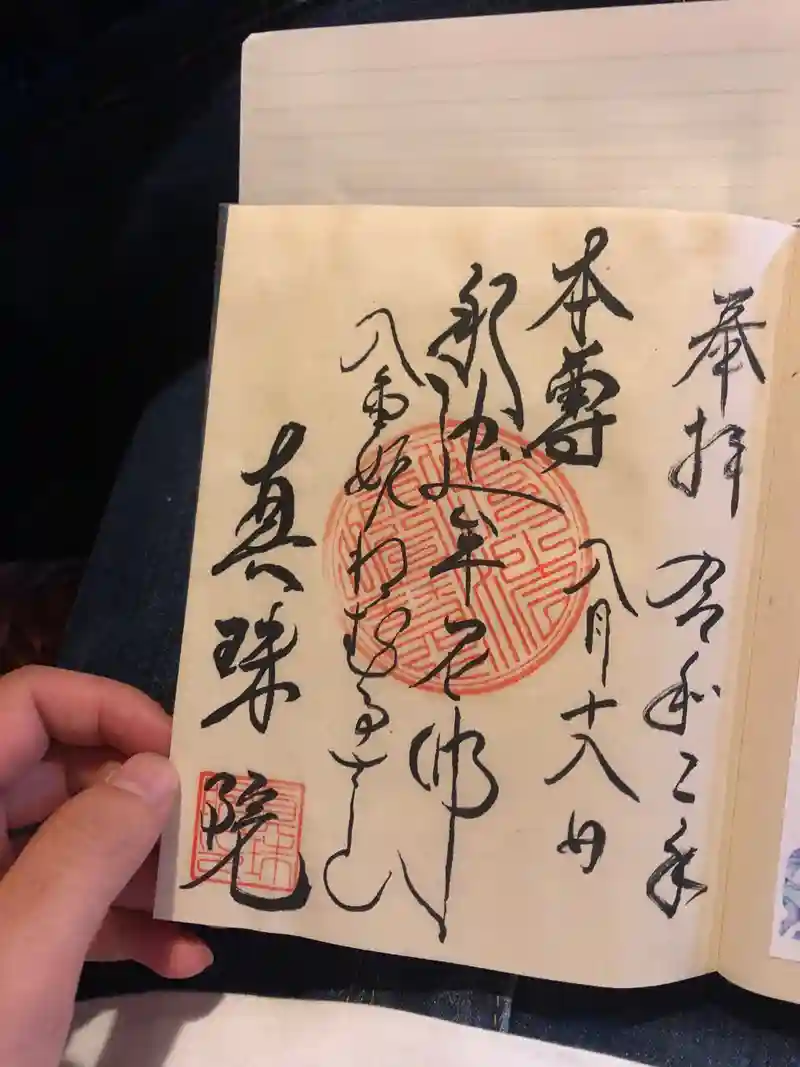 奉拝 令和二年
八月十八日
本尊
釈迦牟尼佛
八重姫
真珠院